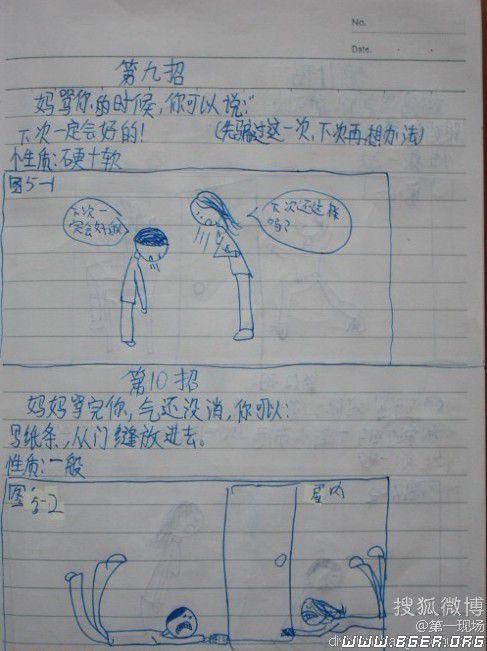 No.
Date.
第九招
妈骂你的时候,你可以说:“
下次一定会好的!  (先骗过这一次,下次再想办法)
性质:硬+软
图5-1
下次一
定会好的
下次还这样
吗?
第10招
妈妈骂完你,气还没消,你可以:
写纸条,从门缝放进去。
性质:一般
图5-2
屋内
搜狐微博
@第一现场
WWW.BGER.ORG